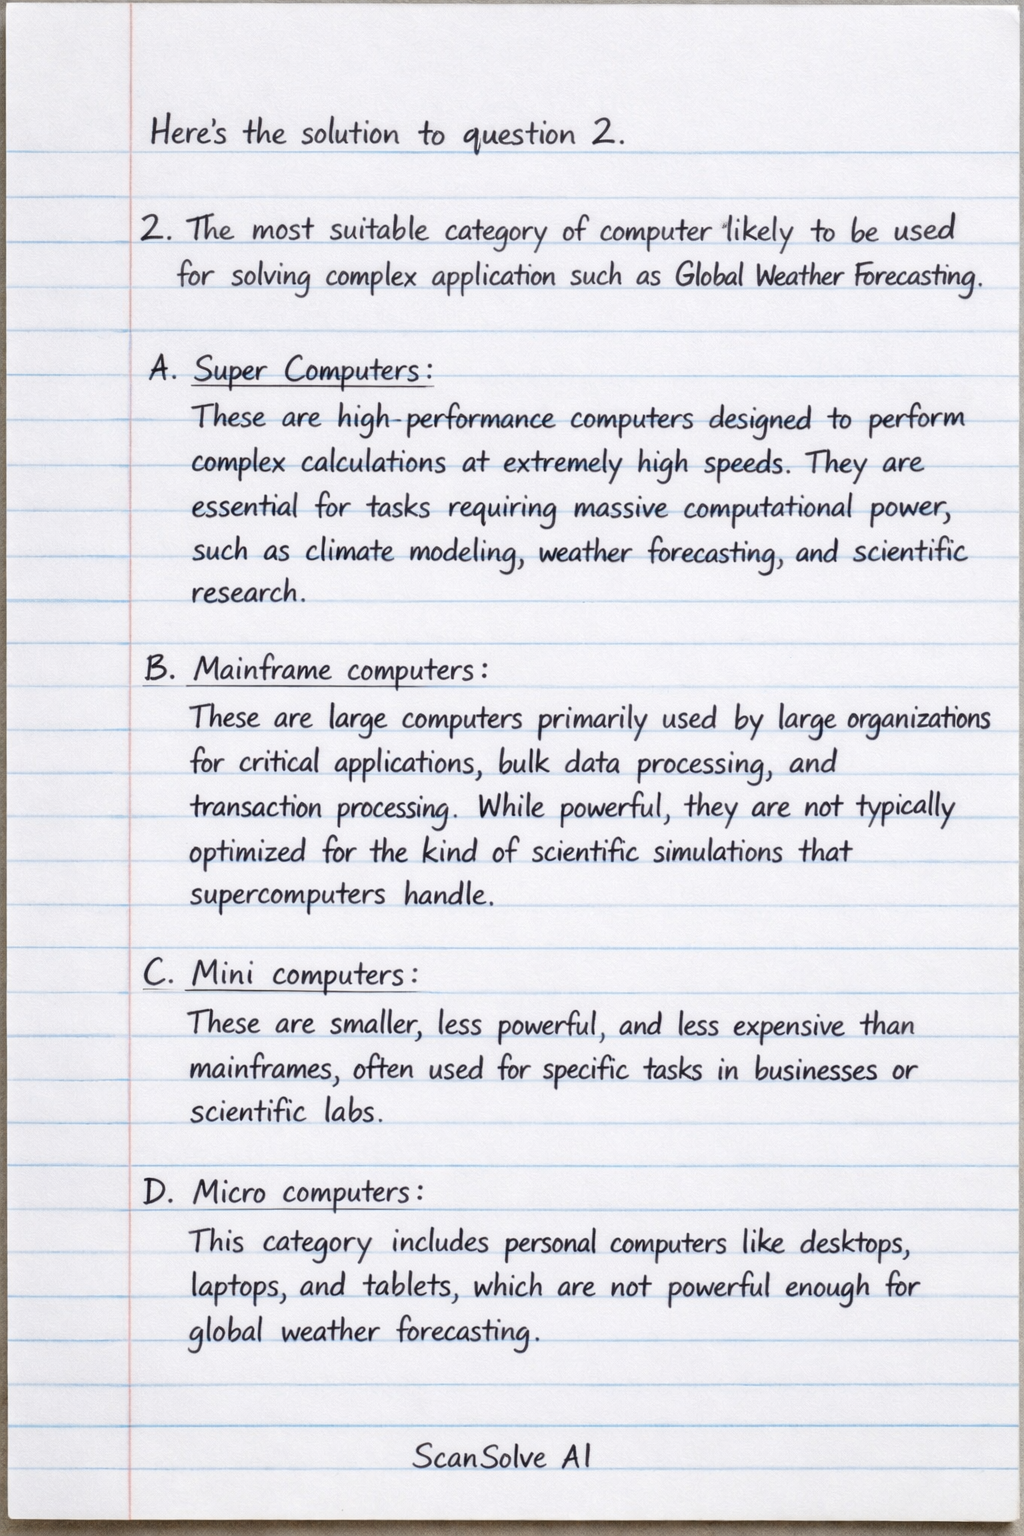 Here's the solution to question 2.
2. The most suitable category of computer likely to be used
for solving complex application such as Global Weather Forecasting.
A. Super Computers:
These are high-performance computers designed to perform
complex calculations at extremely high speeds. They are
essential for tasks requiring massive computational power,
such as climate modeling, weather forecasting, and scientific
research.
B. Mainframe computers:
These are large computers primarily used by large organizations
for critical applications, bulk data processing, and
transaction processing. While powerful, they are not typically
optimized for the kind of scientific simulations that
supercomputers handle.
C. Mini computers:
These are smaller, less powerful, and less expensive than
mainframes, often used for specific tasks in businesses or
scientific labs.
D. Micro computers:
This category includes personal computers like desktops,
laptops, and tablets, which are not powerful enough for
global weather forecasting.
ScanSolve AI